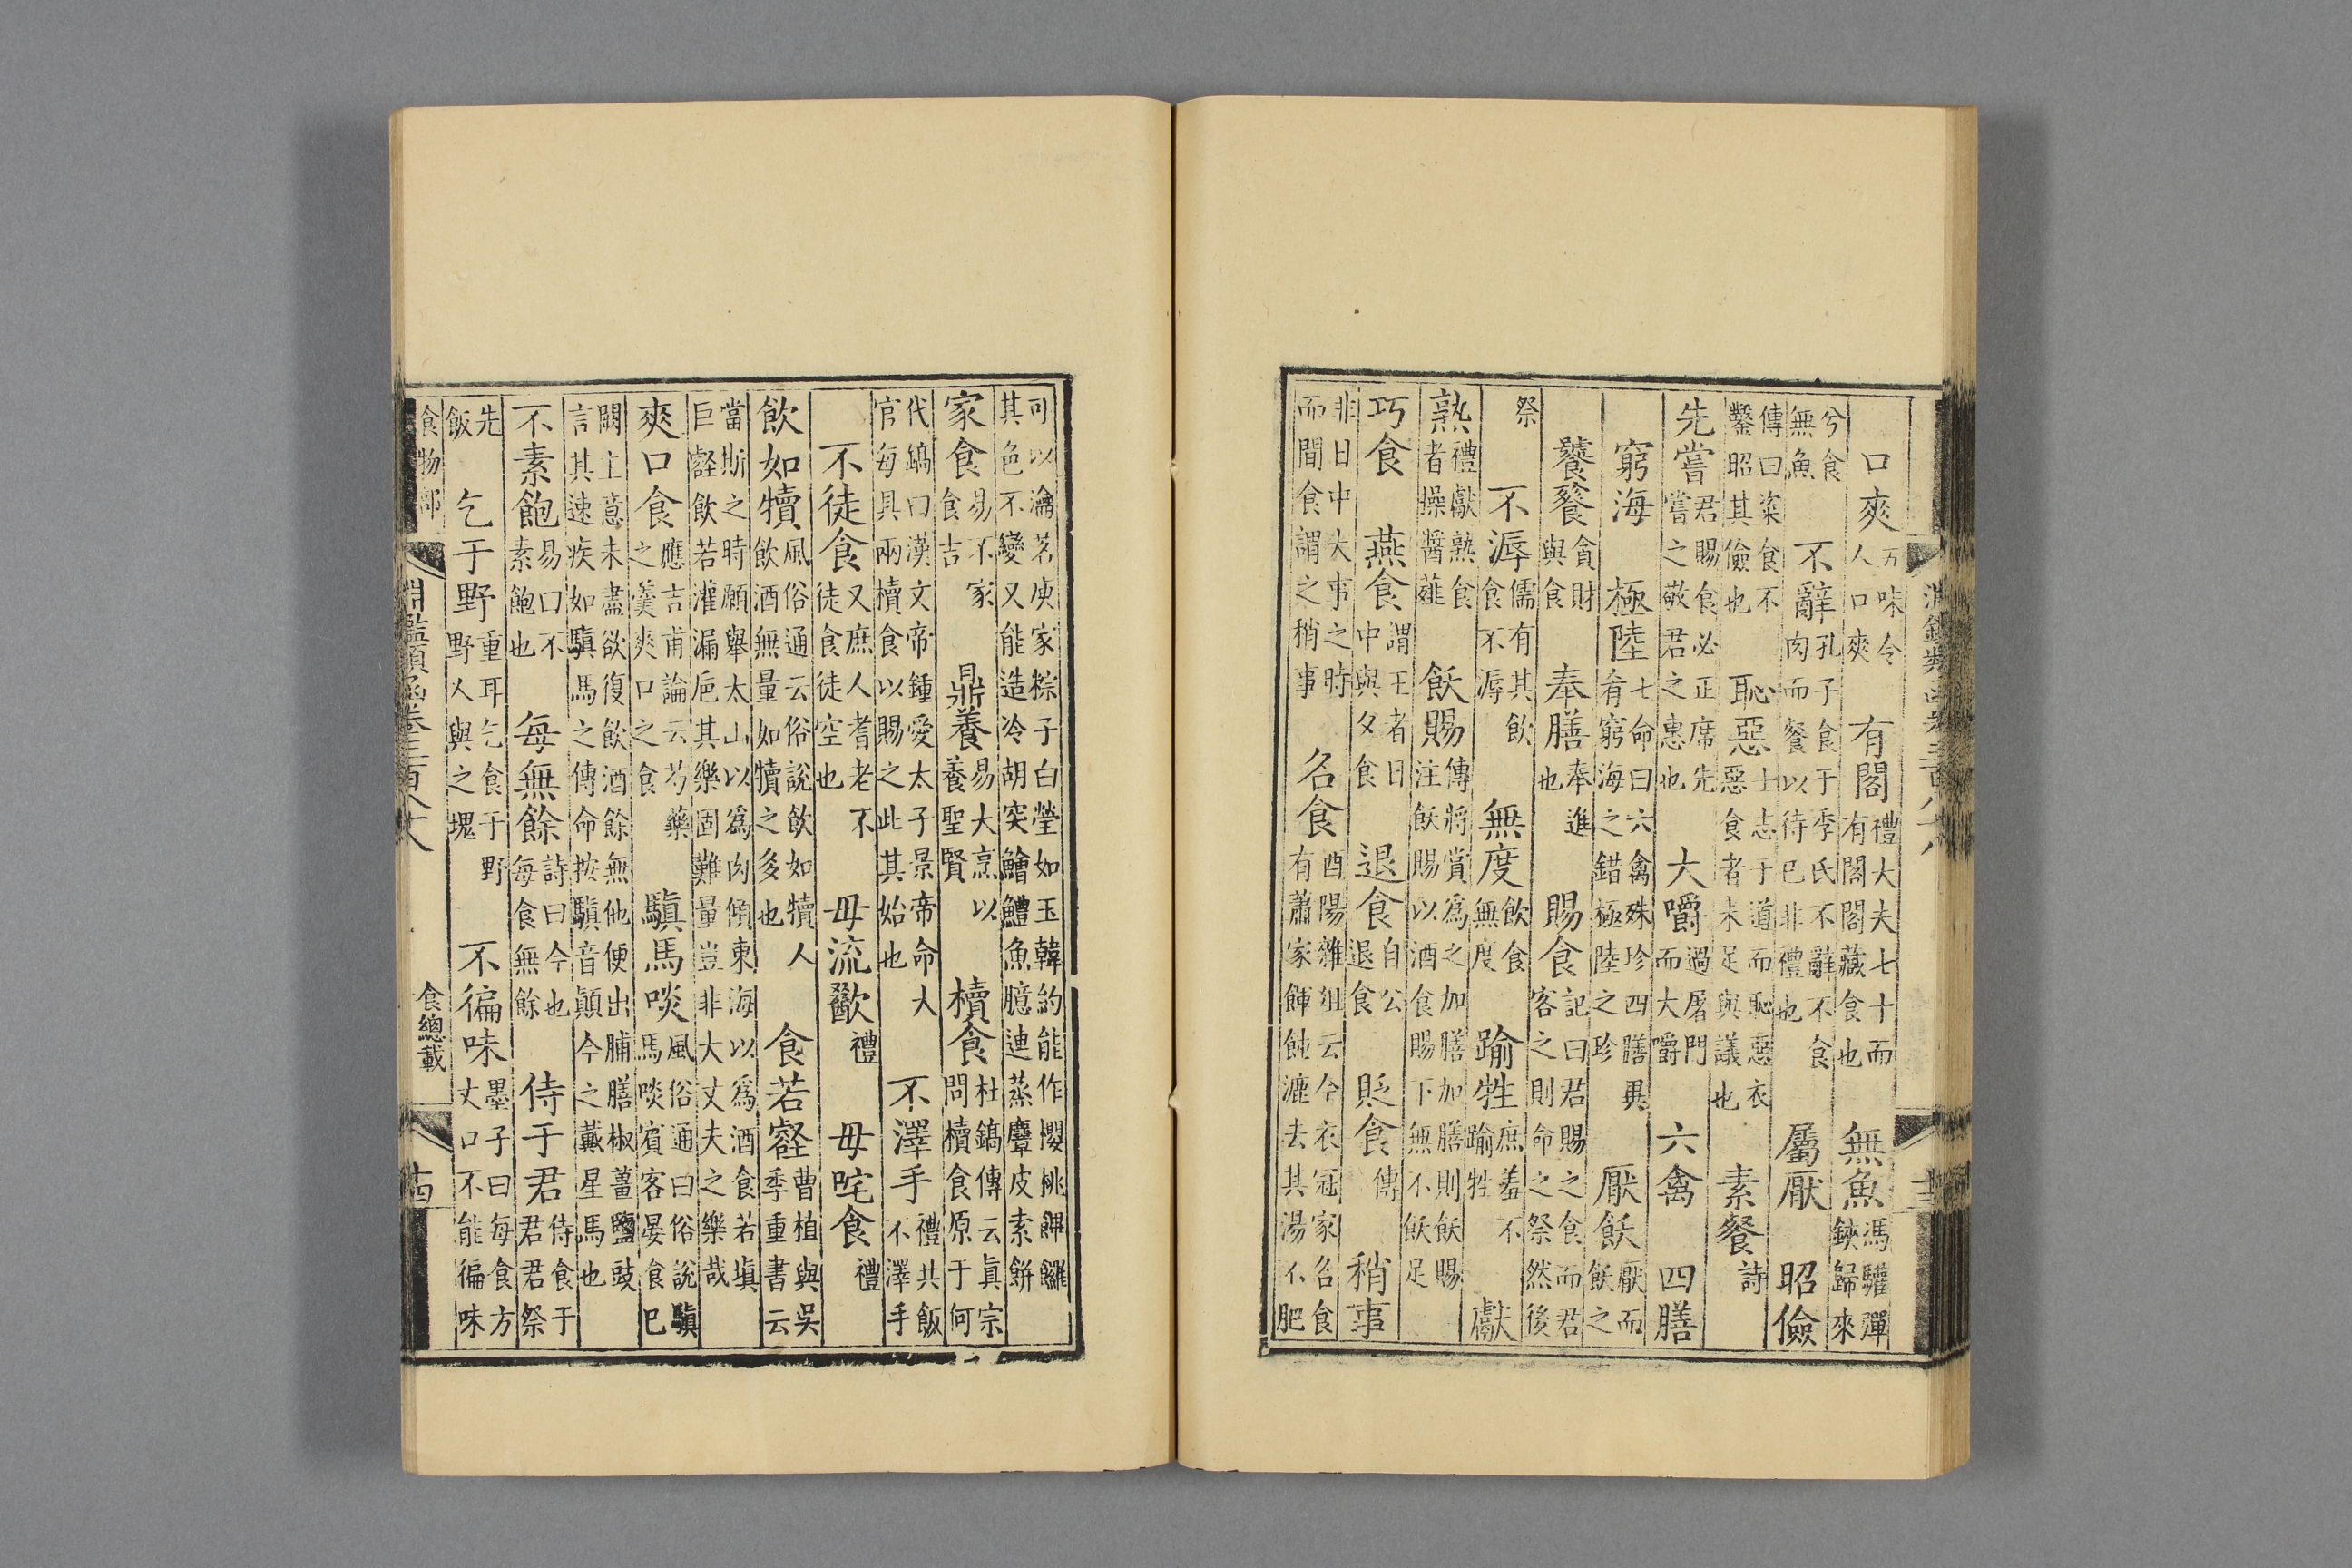 淵鑑類函卷三百八十八
口爽五味令人口爽 有閣禮大夫七十而有閣閣藏食也 無魚馮驩彈鋏歸來
兮食無魚 不辭孔子食于季氏不辭不食肉而餐以待已非禮也 屬厭 昭儉
傳曰粢食不鑿昭其儉也 恥惡士志于道而恥惡衣惡食者未足與議也 素餐詩
先嘗君賜食必正席先嘗之敬君之惠也 大嚼過屠門而大嚼 六禽 四膳
窮海 極陸七命曰六禽殊珍四膳異肴窮海之錯極陸之珍 厭飫厭而飫之
饕餮貪財與食 奉膳奉進也 賜食記曰君賜之食而君客之則命之祭然後
祭 不溽儒有其飲食不溽 無度飲食無度 踰牲庶羞不踰牲 獻
熟禮獻熟食者操醬薤 飫賜傳將賞爲之加膳加膳則飫賜注飫賜以酒食賜下無不飫足
巧食 燕食謂王者日中與夕食 退食自公退食 貶食傳 稍事
非日中大事之時而間食謂之稍事 名食酉陽雜俎云今衣冠家名食有蕭家餫飩漉去其湯不肥
可以瀹茗庾家粽子白瑩如玉韓約能作櫻桃饆饠其色不變又能造冷胡突鱠鱧魚臆連蒸麞皮索餅
家食易不家食吉 鼎養易大烹以養聖賢 櫝食杜鎬傳云眞宗問櫝食原于何
代鎬曰漢文帝鍾愛太子景帝命大官每具兩櫝食以賜之此其始也 不澤手禮共飯不澤手
不徒食又庶人耆老不徒食徒空也 毋流歠禮 毋咤食禮
飲如犢風俗通云俗說飲如犢人飲酒無量如犢之多也 食若壑曹植與吳季重書云
當斯之時願舉太山以爲肉傾東海以爲酒食若塡巨壑飲若灌漏巵其樂固難量豈非大丈夫之樂哉
爽口食應吉甫論云芍藥之羹爽口之食 馬啖風俗通曰俗說馬啖賓客晏食已
闕上意未盡欲復飲酒餘無他便出脯膳椒薑鹽豉言其速疾如馬之傳命按音顛今之戴星馬也
不素飽易曰不素飽也 每無餘詩曰今也每食無餘 侍于君侍食于君君祭
先飯 乞于野重耳乞食于野野人與之塊 不徧味墨子曰每食方丈口不能徧味
食物部 淵鑑類函卷三百八十八 食總載 十四